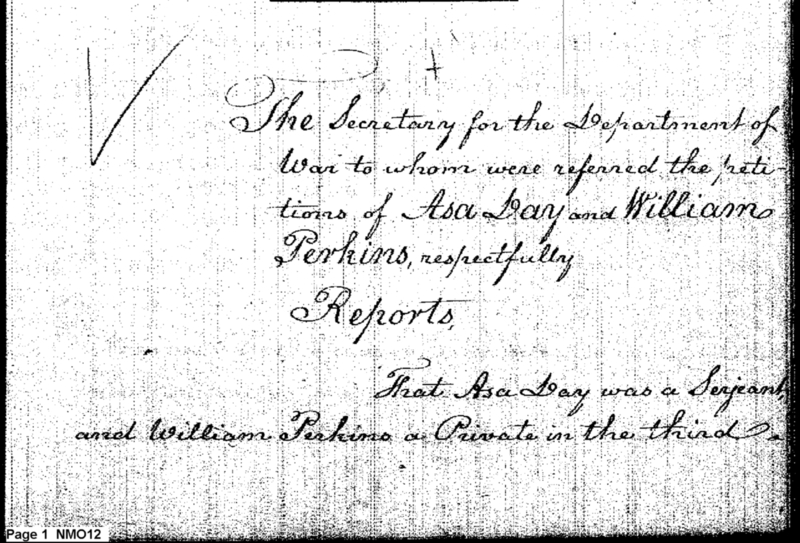 The Secretary for the Department of
War to whom were referred the peti-
tions of Asa Day and William
Perkins, respectfully
Reports,
That Asa Day was a Serjeant,
and William Perkins a Private in the third
Page 1 NMO12